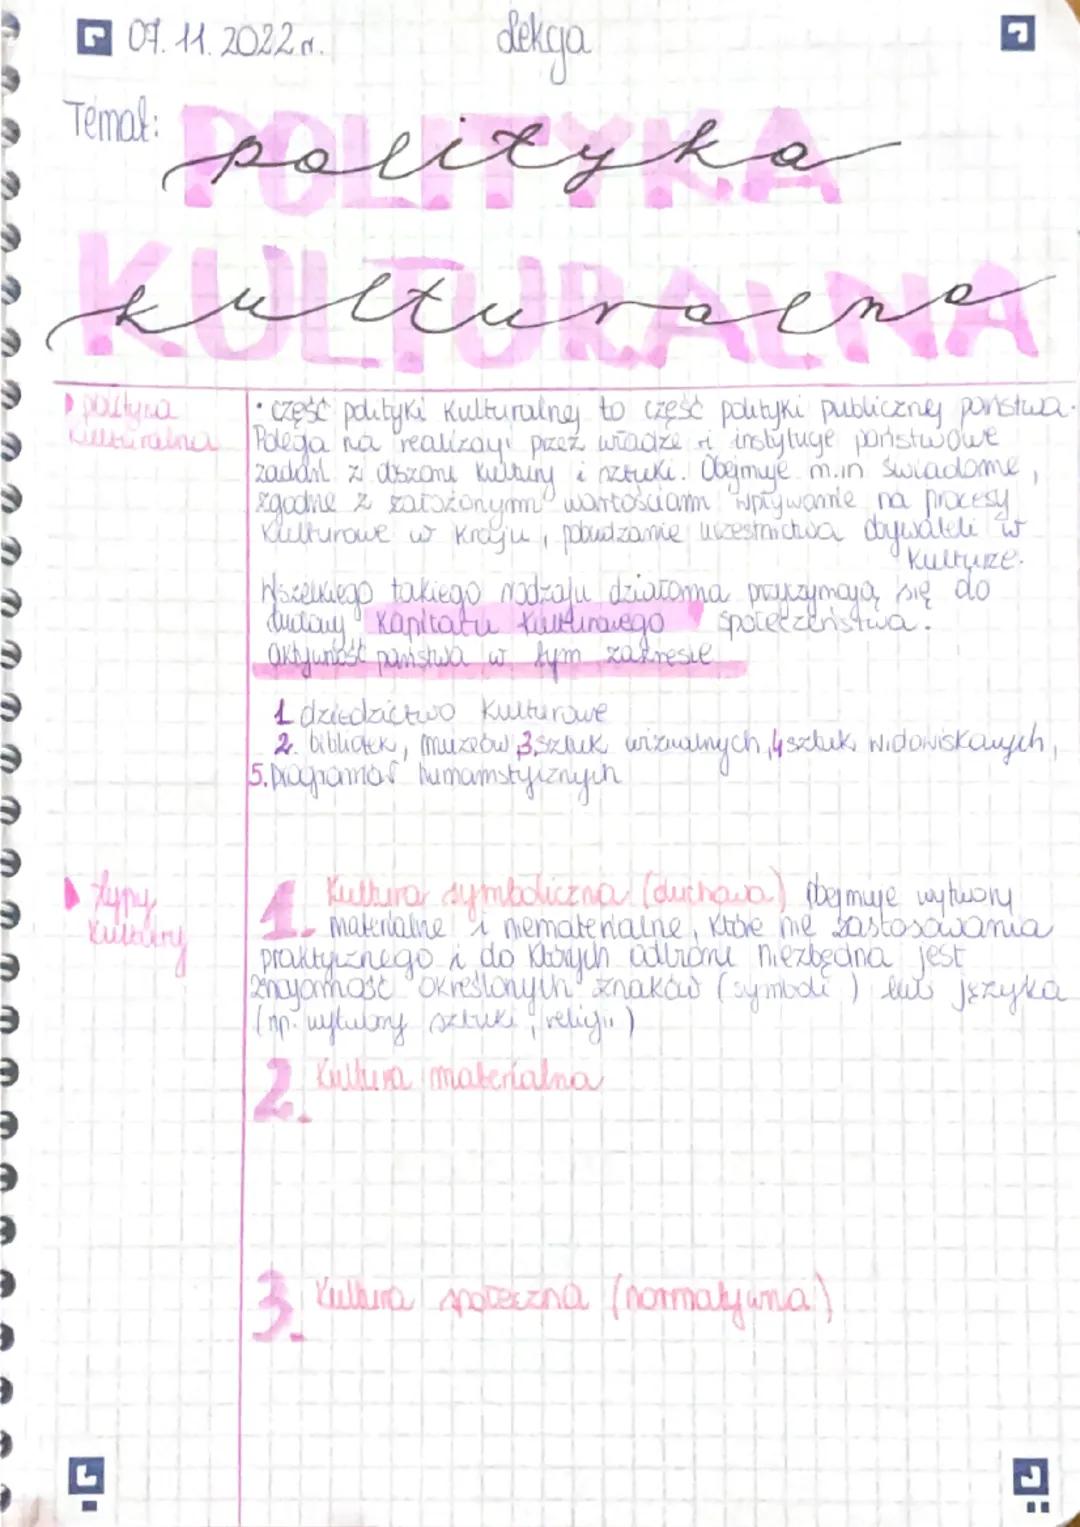 07.11.2022 r. Lekcja
Temat: POLITYKA polityka
KULTURALNA kulturalna
polityka
kulturalna
• część polityki kulturalnej to część polityki publicznej państwa.
Polega na realizacji przez władze i instytucje państwowe
zadań z obszaru kultury i sztuki. Obejmuje m.in świadome,
zgodne z założonymi wartościami wpływanie na procesy
kulturowe w kraju, pobudzanie uczestnictwa obywateli w
kulturze.
Wszelkiego takiego rodzaju działania przyczymają się do
budowy kapitału kulturowego społeczeństwa.
aktywność państwa w tym zakresie
1 dziedzictwo kulturowe
2. bibliotek, muzeów 3.sztuk wizualnych, 4 sztuk widowiskowych,
5. programów humanistycznych
typy
kultury
1. Kultura symboliczna (duchowa) Obejmuje wytwory
materialne i niematerialne, które nie zastosowania
praktycznego i do których odbioru niezbędna jest
znajomość określonych znaków (symboli) lub języka
(np. wytwory sztuki, religii)
2. Kultura materialna
3. Kultura społeczna (normatywna)